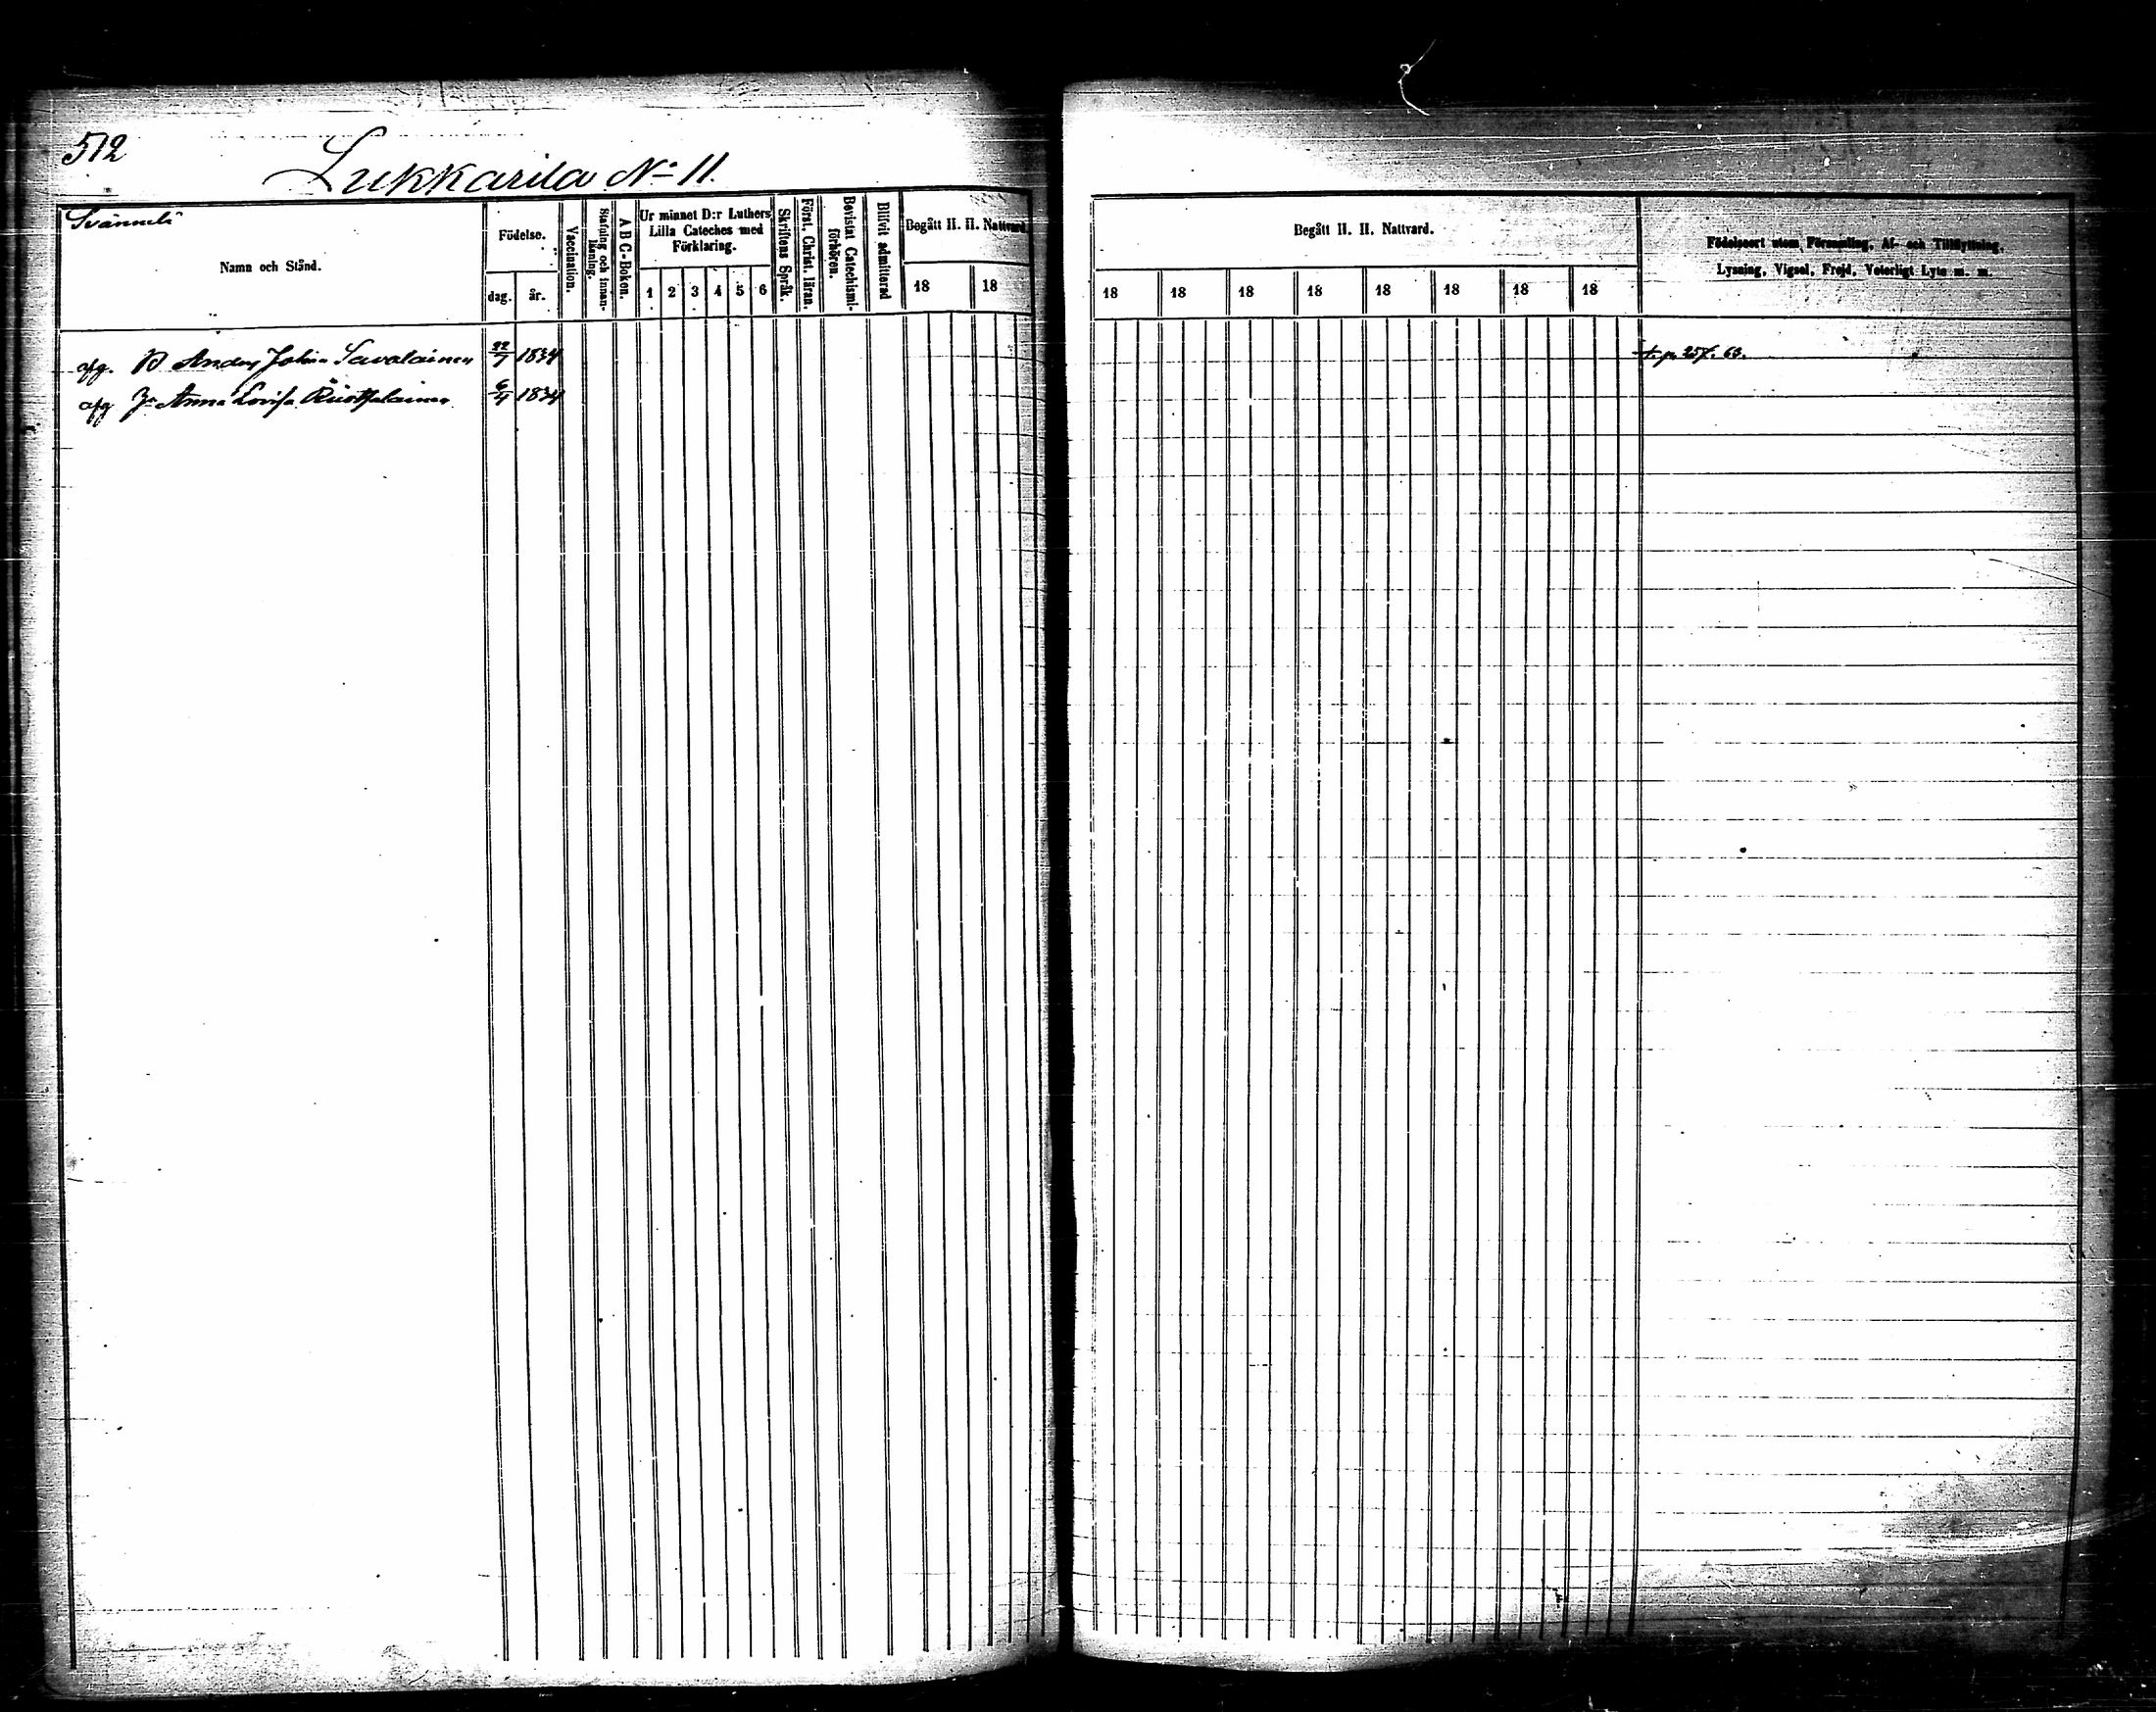 512
Lukkarila No 11.
Svännilä
Namn och Stånd.
Födelse.
dag. år.
Vaccination.
Stafning och innanläsning.
A B C-Boken.
Ur minnet D:r Luthers
Lilla Cateches med
Förklaring.
1 2 3 4 5 6
Skriftens Språk.
Först. Christ. läran.
Bevistat Catechismi-förhören.
Blifvit admitterad
Begått H. H. Nattvard.
18 18
Begått H. H. Nattvard.
18 18 18 18 18 18 18 18
Födelseort utom Församling, Af- och Tillflyttning,
Lysning, Vigsel, Frejd, Veterligt Lyte m. m.
afg. B Anders Johan Savolainen 22/7 1834 t. p. 257. 63.
afg Anna Lovisa 6/4 1834